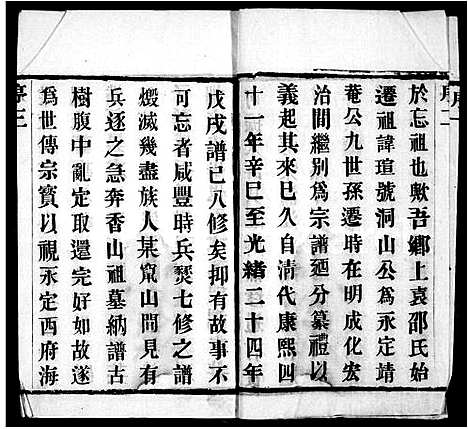 序二
於忘祖也歟吾鄉上袁邵氏始
遷祖諱瑄號洞山公為永定靖
菴公九世孫遷時在明成化宏
治間繼別為宗譜迺分纂禮以
義起其來久自清代康熙四
十一年辛巳至光緒二十四年
戊戌譜已八修矣抑有故事不
可忘者咸豐時兵燹七修之譜
燬滅幾盡族人某竄山間見有
兵逐之急奔香山祖墓納譜古
樹腹中亂定取還完好如故遂
為世傳宗寶以視永定西府海
序三